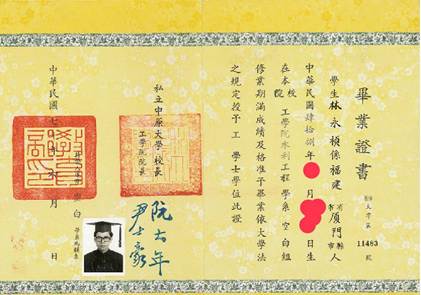 畢業證書
學生林永楨係福建
廈門
人
11483
中華民國肆拾捌年 月 日生
在本校
院
工學院水利工程學系 空白 組
修業期滿成績及格准予畢業依大學法
之規定授予工 學士學位此證
私立中原大學 校長
工學院院長
阮大年
尹士豪
中華民國七 年 月 日